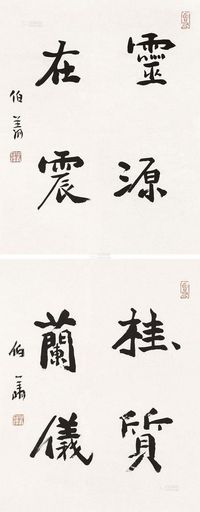 靈源
在震
伯萧
桂質
蘭儀
伯萧